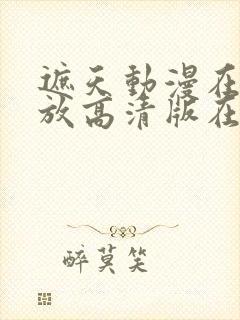 遮天動漫在
放高清版在
醉莫笑